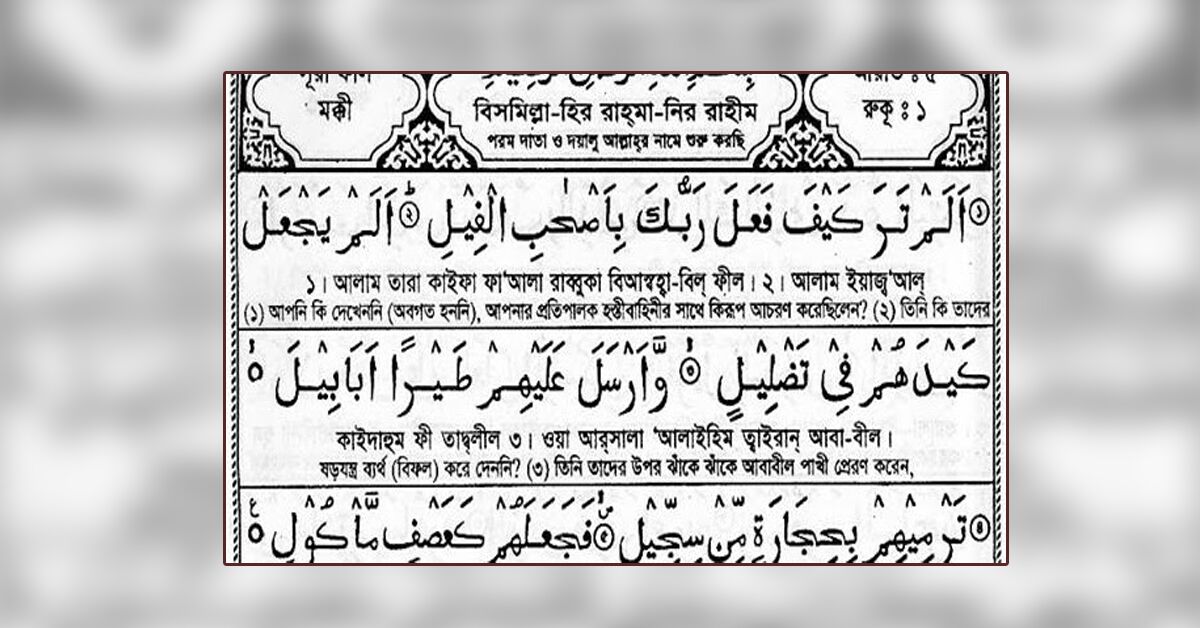 সূরা ফীল
মক্কী
বিসমিল্লা-হির রাহ্‌মা-নির রাহীম
পরম দাতা ও দয়ালু আল্লাহ্‌র নামে শুরু করছি
আয়াত : ৫
রুকূ : ১
۝١ اَلَمْ تَرَ كَيْفَ فَعَلَ رَبُّكَ بِاَصْحٰبِ الْفِيْلِ ۝٢ اَلَمْ يَجْعَلْ
১। আলাম তারা কাইফা ফা'আলা রাব্বুকা বিআস্বহা-বিল্ ফীল। ২। আলাম ইয়াজ্ব'আল্
(১) আপনি কি দেখেননি (অবগত হননি), আপনার প্রতিপালক হস্তীবাহিনীর সাথে কিরূপ আচরণ করেছিলেন? (২) তিনি কি তাদের
كَيْدَهُمْ فِيْ تَضْلِيْلٍ ۝٣ وَّاَرْسَلَ عَلَيْهِمْ طَيْرًا اَبَابِيْلَ
কাইদাহুম ফী তাদ্ব্‌লীল ৩। ওয়া আর্‌সালা 'আলাইহিম ত্বাইরান্ আবা-বীল।
ষড়যন্ত্র ব্যর্থ (বিফল) করে দেননি? (৩) তিনি তাদের উপর ঝাঁকে ঝাঁকে আবাবীল পাখী প্রেরণ করেন,
۝٤ تَرْمِيْهِمْ بِحِجَارَةٍ مِّنْ سِجِّيْلٍ ۝٥ فَجَعَلَهُمْ كَعَصْفٍ مَّاْكُوْلٍ